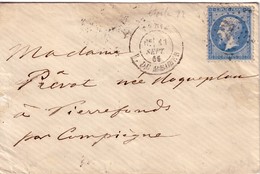 Madame
Prévot née Roqueplan
à Pierrefonds
par Compiègne
SEPT.